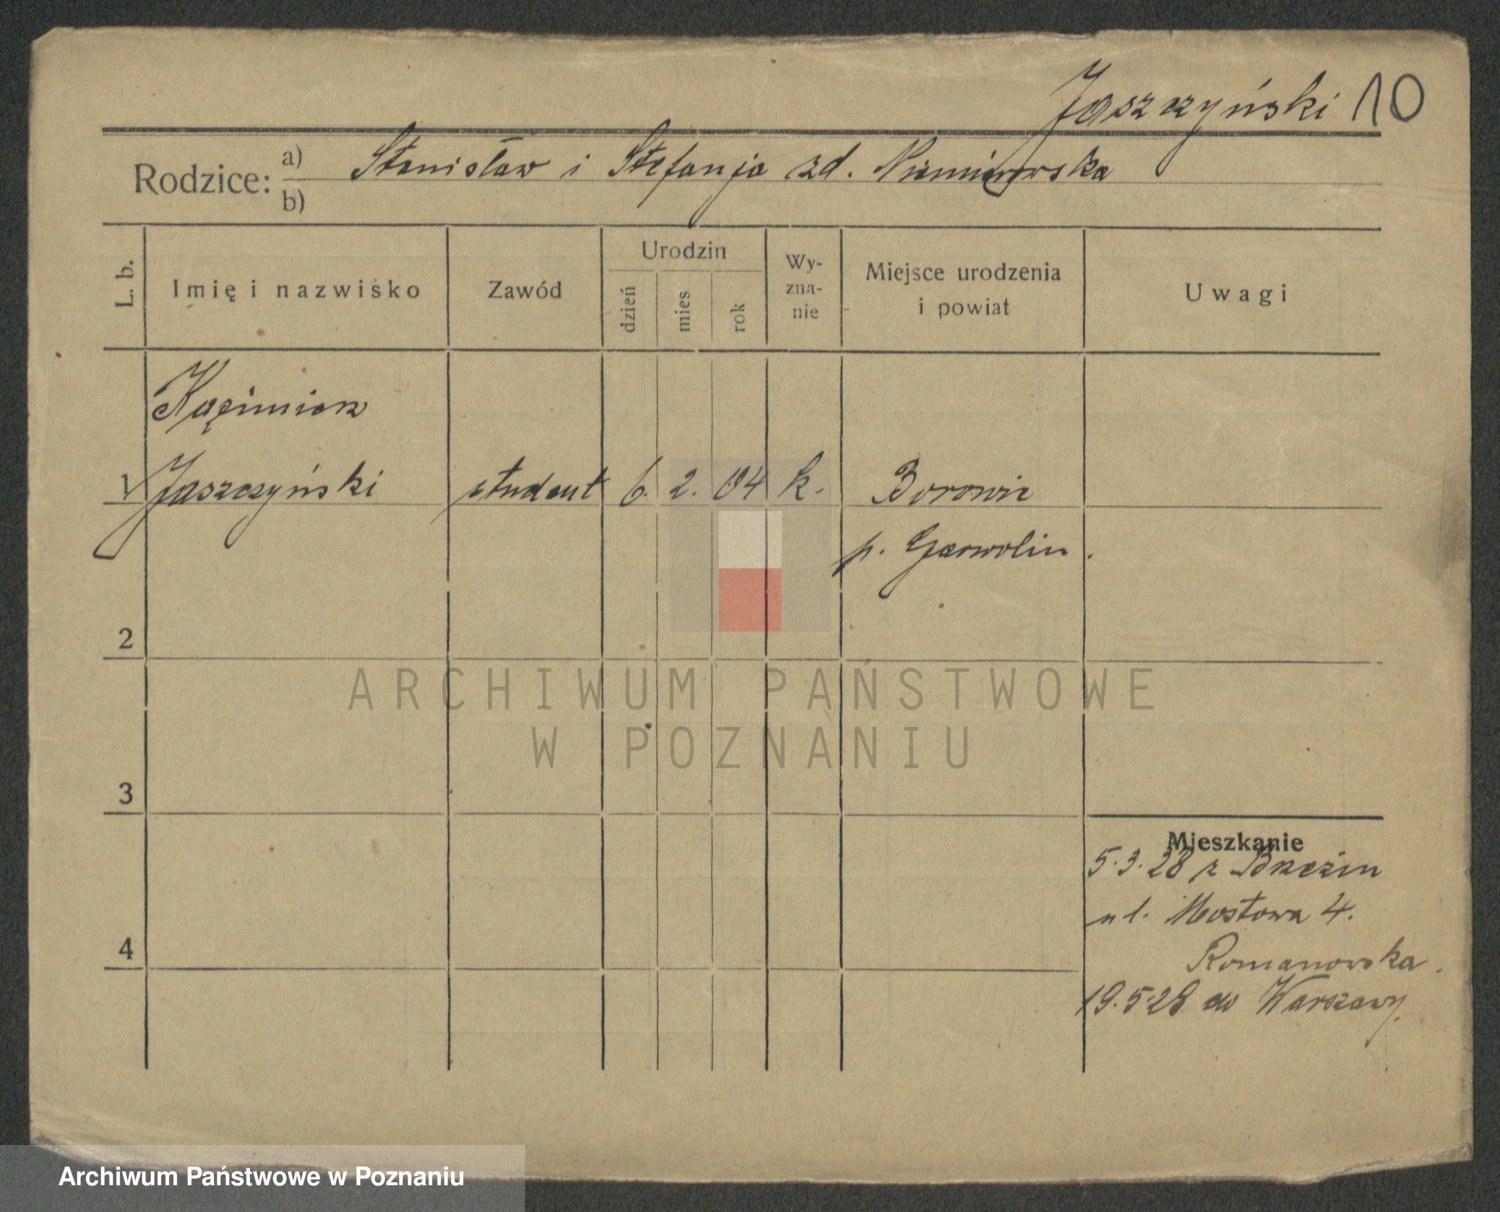 Jaszczyński 10
Rodzice: a) Stanisław i Stefanja zd.
b)
L. b.
Imię i nazwisko
Zawód
Urodzin
dzień
mies
rok
Wy-
zna-
nie
Miejsce urodzenia
i powiat
Uwagi
Kazimierz
1 Jaszczyński student 6. 2. 04 k. Borowie
p. Garwolin.
2
3
4
ARCHIWUM PAŃSTWOWE
W POZNANIU
Mieszkanie
5.3.28 z Brzezin
ul. Mostowa 4.
Romanowska.
19.5.28 do Warszawy.
Archiwum Państwowe w Poznaniu